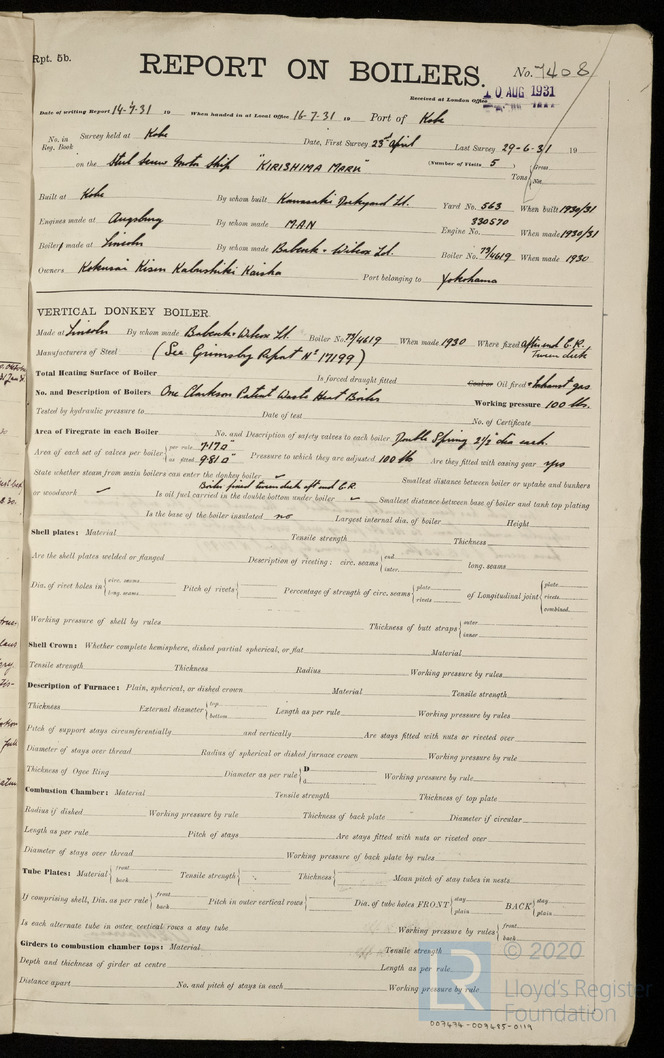 Rpt. 5b.
REPORT ON BOILERS.
No. 7408
Received at London Office
10 AUG 1931
Date of writing Report 14-7-31 19 When handed in at Local Office 16-7-31 19 Port of Kobe
No. in Reg. Book Survey held at Kobe Date, First Survey 23rd April Last Survey 29-6-31 19
(Number of Visits 5 )
on the Steel Screw Motor Ship "KIRISHIMA MARU" Tons { Gross Net
Built at Kobe By whom built Kawasaki Dockyard Ld. Yard No. 563 When built 1930/31
Engines made at Augsburg By whom made M.A.N Engine No. 330570 When made 1930/31
Boilers made at Lincoln By whom made Babcock & Wilcox Ld. Boiler No. 73/4619 When made 1930
Owners Kokusai Kisen Kabushiki Kaisha Port belonging to Yokohama
VERTICAL DONKEY BOILER
Made at Lincoln By whom made Babcock & Wilcox Ld. Boiler No. 73/4619 When made 1930 Where fixed Aft end E.R. Tween deck
Manufacturers of Steel (See Grimsby Report No 17199)
Total Heating Surface of Boiler Is forced draught fitted Coal or Oil fired & Exhaust gas
No. and Description of Boilers One Clarkson Patent Waste Heat Boiler Working pressure 100 lbs.
Tested by hydraulic pressure to Date of test No. of Certificate
Area of Firegrate in each Boiler No. and Description of safety valves to each boiler Double Spring 2½ dia each.
Area of each set of valves per boiler { per rule 7.17 □" as fitted 9.81 □" Pressure to which they are adjusted 100 lbs Are they fitted with easing gear yes
State whether steam from main boilers can enter the donkey boiler ✓ Smallest distance between boiler or uptake and bunkers
Boiler fixed tween deck aft end E.R.
or woodwork ✓ Is oil fuel carried in the double bottom under boiler ✓ Smallest distance between base of boiler and tank top plating
Is the base of the boiler insulated no Largest internal dia. of boiler Height
Shell plates: Material Tensile strength Thickness
Are the shell plates welded or flanged Description of riveting: circ. seams { end inter. long. seams
Dia. of rivet holes in { circ. seams long. seams Pitch of rivets { Percentage of strength of circ. seams { plate rivets of Longitudinal joint { plate rivets combined
Working pressure of shell by rules Thickness of butt straps { outer inner
Shell Crown: Whether complete hemisphere, dished partial spherical, or flat Material
Tensile strength Thickness Radius Working pressure by rules
Description of Furnace: Plain, spherical, or dished crown Material Tensile strength
Thickness External diameter { top bottom Length as per rule Working pressure by rules
Pitch of support stays circumferentially and vertically Are stays fitted with nuts or riveted over
Diameter of stays over thread Radius of spherical or dished furnace crown Working pressure by rule
Thickness of Ogee Ring Diameter as per rule { D d Working pressure by rule
Combustion Chamber: Material Tensile strength Thickness of top plate
Radius if dished Working pressure by rule Thickness of back plate Diameter if circular
Length as per rule Pitch of stays Are stays fitted with nuts or riveted over
Diameter of stays over thread Working pressure of back plate by rules
Tube Plates: Material { front back Tensile strength { Thickness { Mean pitch of stay tubes in nests
If comprising shell, Dia. as per rule { front back Pitch in outer vertical rows { Dia. of tube holes FRONT { stay plain BACK { stay plain
Is each alternate tube in outer vertical rows a stay tube Working pressure by rules { front back
Girders to combustion chamber tops: Material Tensile strength
Depth and thickness of girder at centre Length as per rule
Distance apart No. and pitch of stays in each Working pressure by rule
© 2020
LR
Lloyd's Register
Foundation
007474-007485-0119